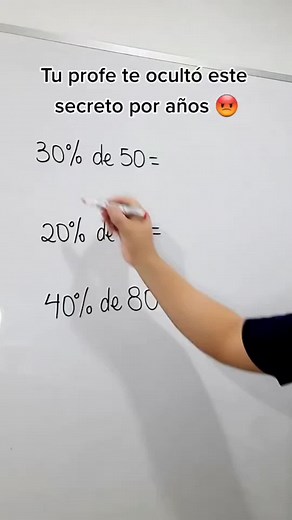 Tu profe te ocultó este
secreto por años 😡
30% de 50=
20% de =
40% de 80